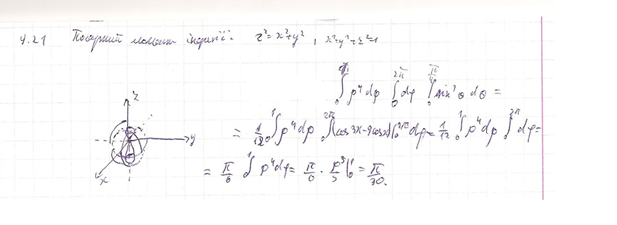 4.21 момент інерції: z² = x² + y², x² + y² + z² = 1
z
y
x
∫ ρ⁴ dρ ∫₀^{2π} dφ ∫₀^{π/4} sin³ θ dθ =
= 1/12 ∫₀¹ ρ⁴ dρ ∫₀^{2π} (cos 3x - 9cos x) dφ = 1/12 ∫₀¹ ρ⁴ dρ ∫₀^{2π} dφ =
= π/6 ∫₀¹ ρ⁴ dρ = π/6 · ρ⁵/5 |₀¹ = π/30.